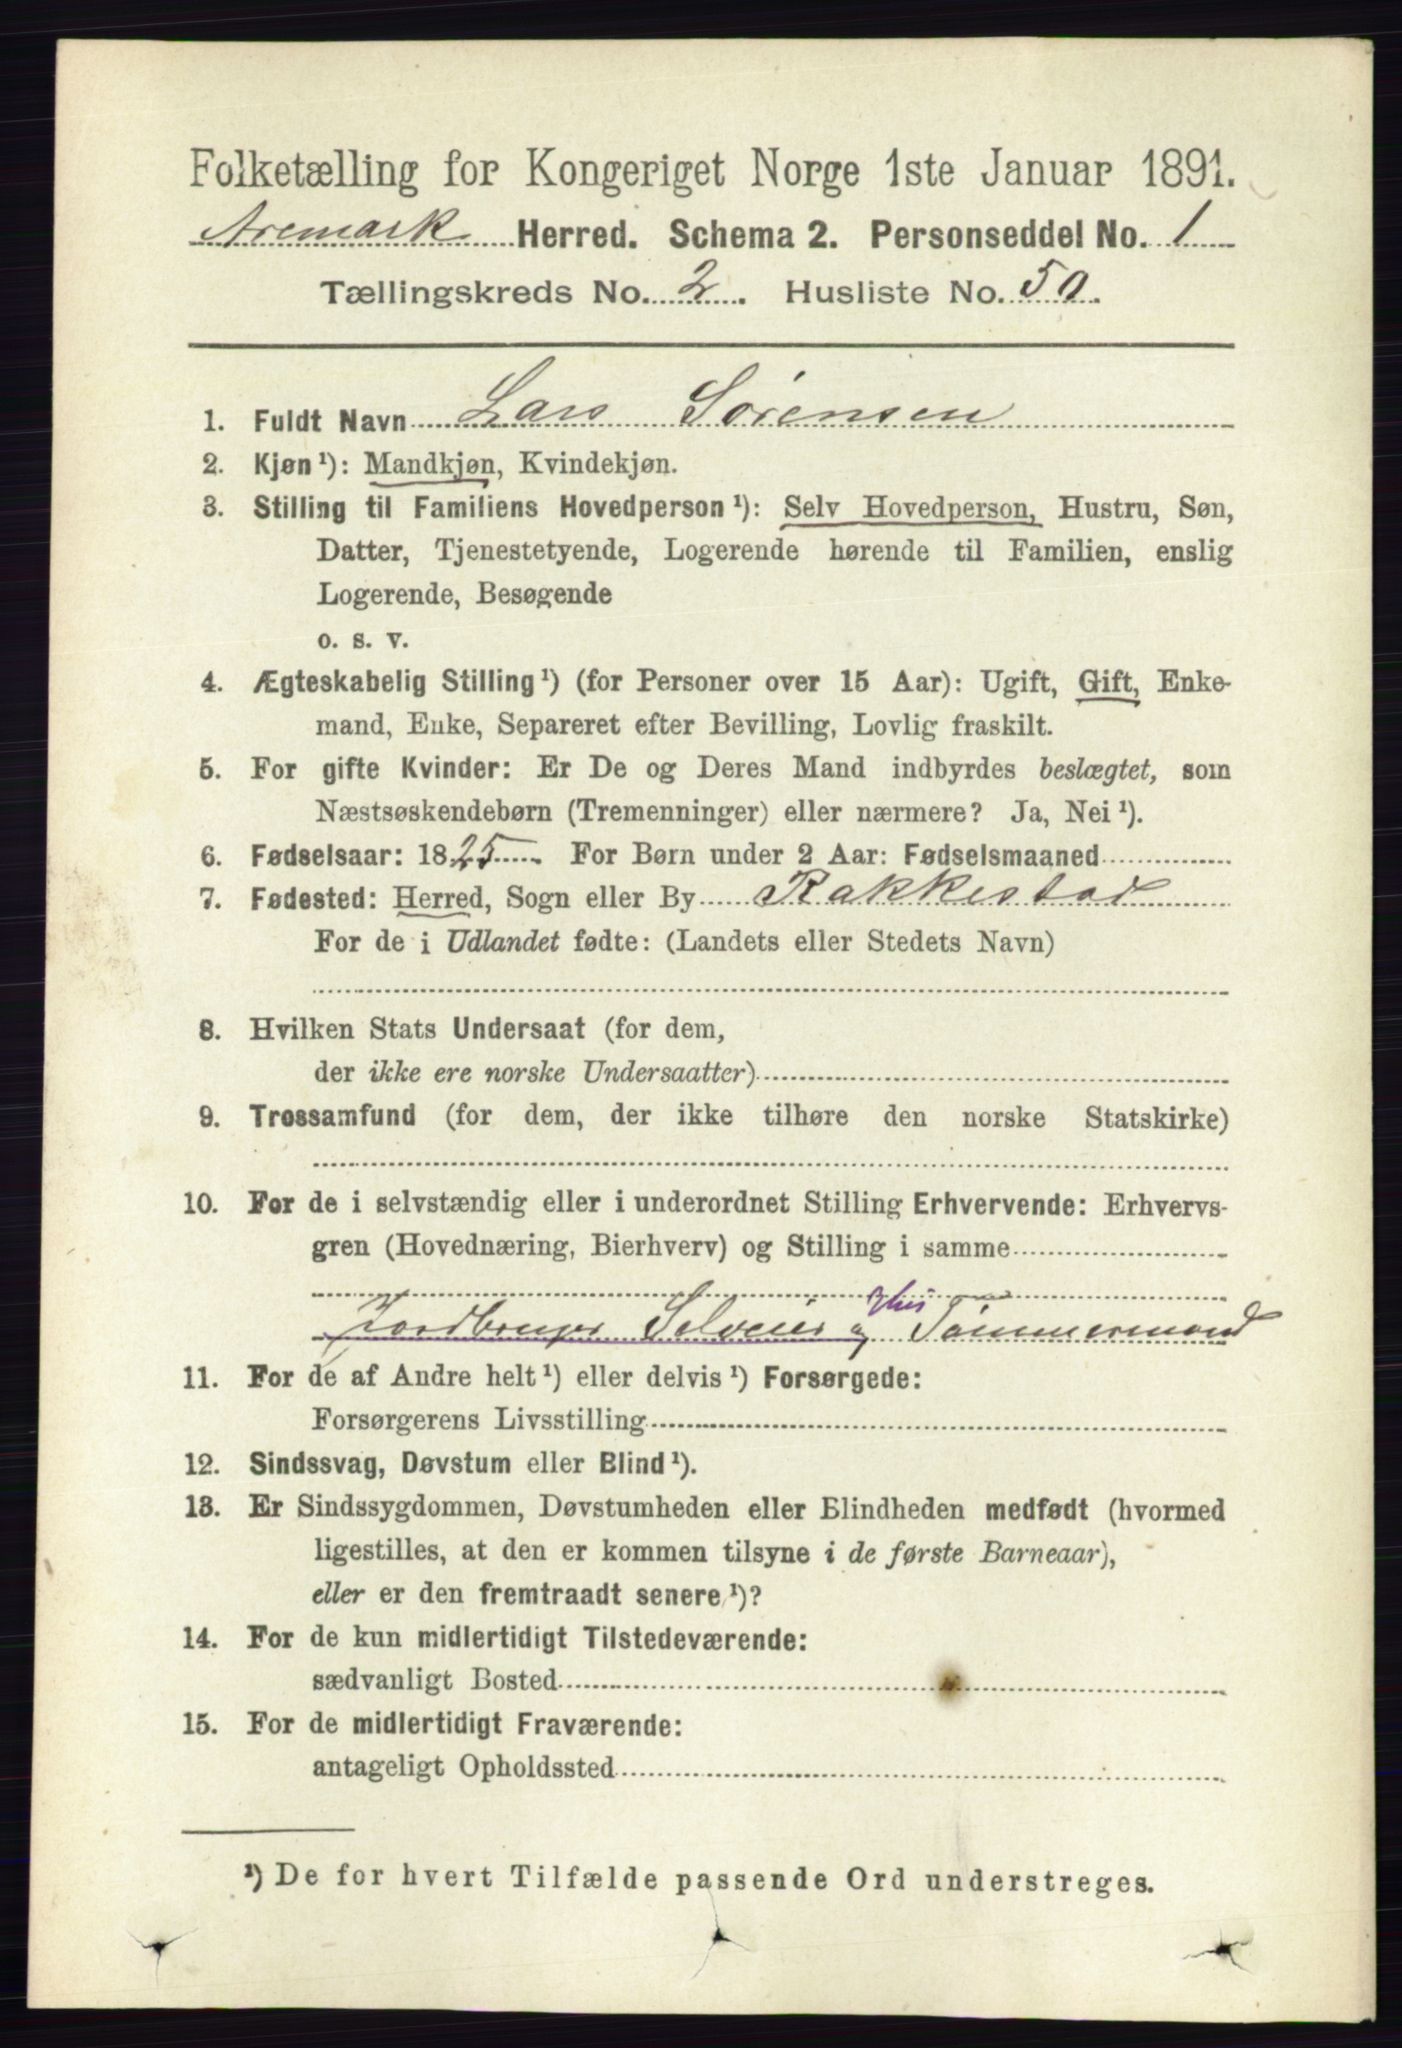 Folketælling for Kongeriget Norge 1ste Januar 1891.
Aremark Herred. Schema 2. Personseddel No. 1
Tællingskreds No. 2. Husliste No. 50.
1. Fuldt Navn Lars Sørensen
2. Kjøn¹): Mandkjøn, Kvindekjøn.
3. Stilling til Familiens Hovedperson¹): Selv Hovedperson, Hustru, Søn,
Datter, Tjenestetyende, Logerende hørende til Familien, enslig
Logerende, Besøgende
o. s. v.
4. Ægteskabelig Stilling¹) (for Personer over 15 Aar): Ugift, Gift, Enke-
mand, Enke, Separeret efter Bevilling, Lovlig fraskilt.
5. For gifte Kvinder: Er De og Deres Mand indbyrdes beslægtet, som
Næstsøskendebørn (Tremenninger) eller nærmere? Ja, Nei¹).
6. Fødselsaar: 1825 For Børn under 2 Aar: Fødselsmaaned
7. Fødested: Herred, Sogn eller By Rakkestad
For de i Udlandet fødte: (Landets eller Stedets Navn)
8. Hvilken Stats Undersaat (for dem,
der ikke ere norske Undersaatter)
9. Trossamfund (for dem, der ikke tilhøre den norske Statskirke)
10. For de i selvstændig eller i underordnet Stilling Erhvervende: Erhvervs-
gren (Hovednæring, Bierhverv) og Stilling i samme
Jordbruger Selveier og Tømmermand
11. For de af Andre helt¹) eller delvis¹) Forsørgede:
Forsørgerens Livsstilling
12. Sindssvag, Døvstum eller Blind¹).
13. Er Sindssygdommen, Døvstumheden eller Blindheden medfødt (hvormed
ligestilles, at den er kommen tilsyne i de første Barneaar),
eller er den fremtraadt senere¹)?
14. For de kun midlertidigt Tilstedeværende:
sædvanligt Bosted
15. For de midlertidigt Fraværende:
antageligt Opholdssted
¹) De for hvert Tilfælde passende Ord understreges.